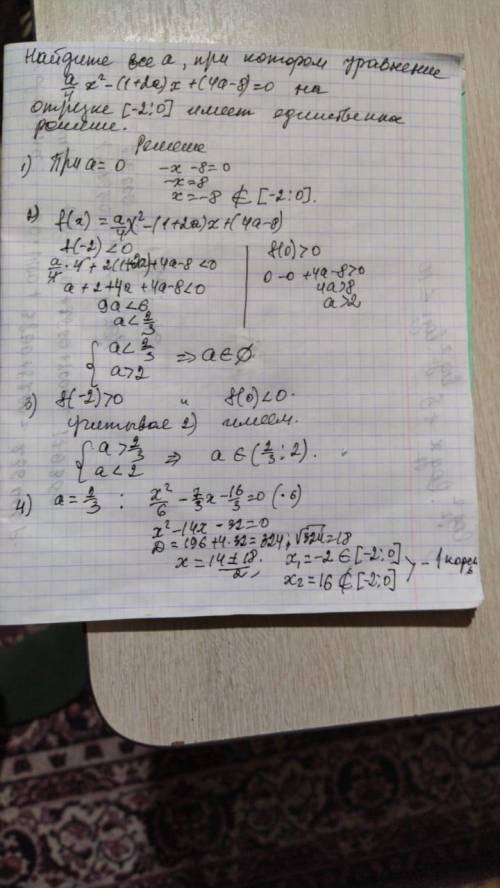 Найдите все а, при котором уравнение
a/4 x² - (1+2a)x + (4a-8) = 0 на
отрезке [-2;0] имеет единственное
решение.
Решение
1) При a = 0 -x - 8 = 0
-x = 8
x = -8 ∉ [-2;0].
2) f(x) = a/4 x² - (1+2a)x + (4a-8)
f(-2) < 0
a/4 · 4 + 2(1+2a) + 4a - 8 < 0
a + 2 + 4a + 4a - 8 < 0
9a < 6
a < 2/3
f(0) > 0
0 - 0 + 4a - 8 > 0
4a > 8
a > 2
{ a < 2/3
a > 2 ⇒ a ∈ ∅.
3) f(-2) > 0 и f(0) < 0.
Учитывая 2) имеем.
{ a > 2/3
a < 2 ⇒ a ∈ (2/3; 2).
4) a = 2/3 : x²/6 - 7/3 x - 16/3 = 0 (·6)
x² - 14x - 32 = 0
D = 196 + 4·32 = 324, √324 = 18
x = (14 ± 18)/2, x₁ = -2 ∈ [-2;0]
x₂ = 16 ∉ [-2;0] } - 1 корень